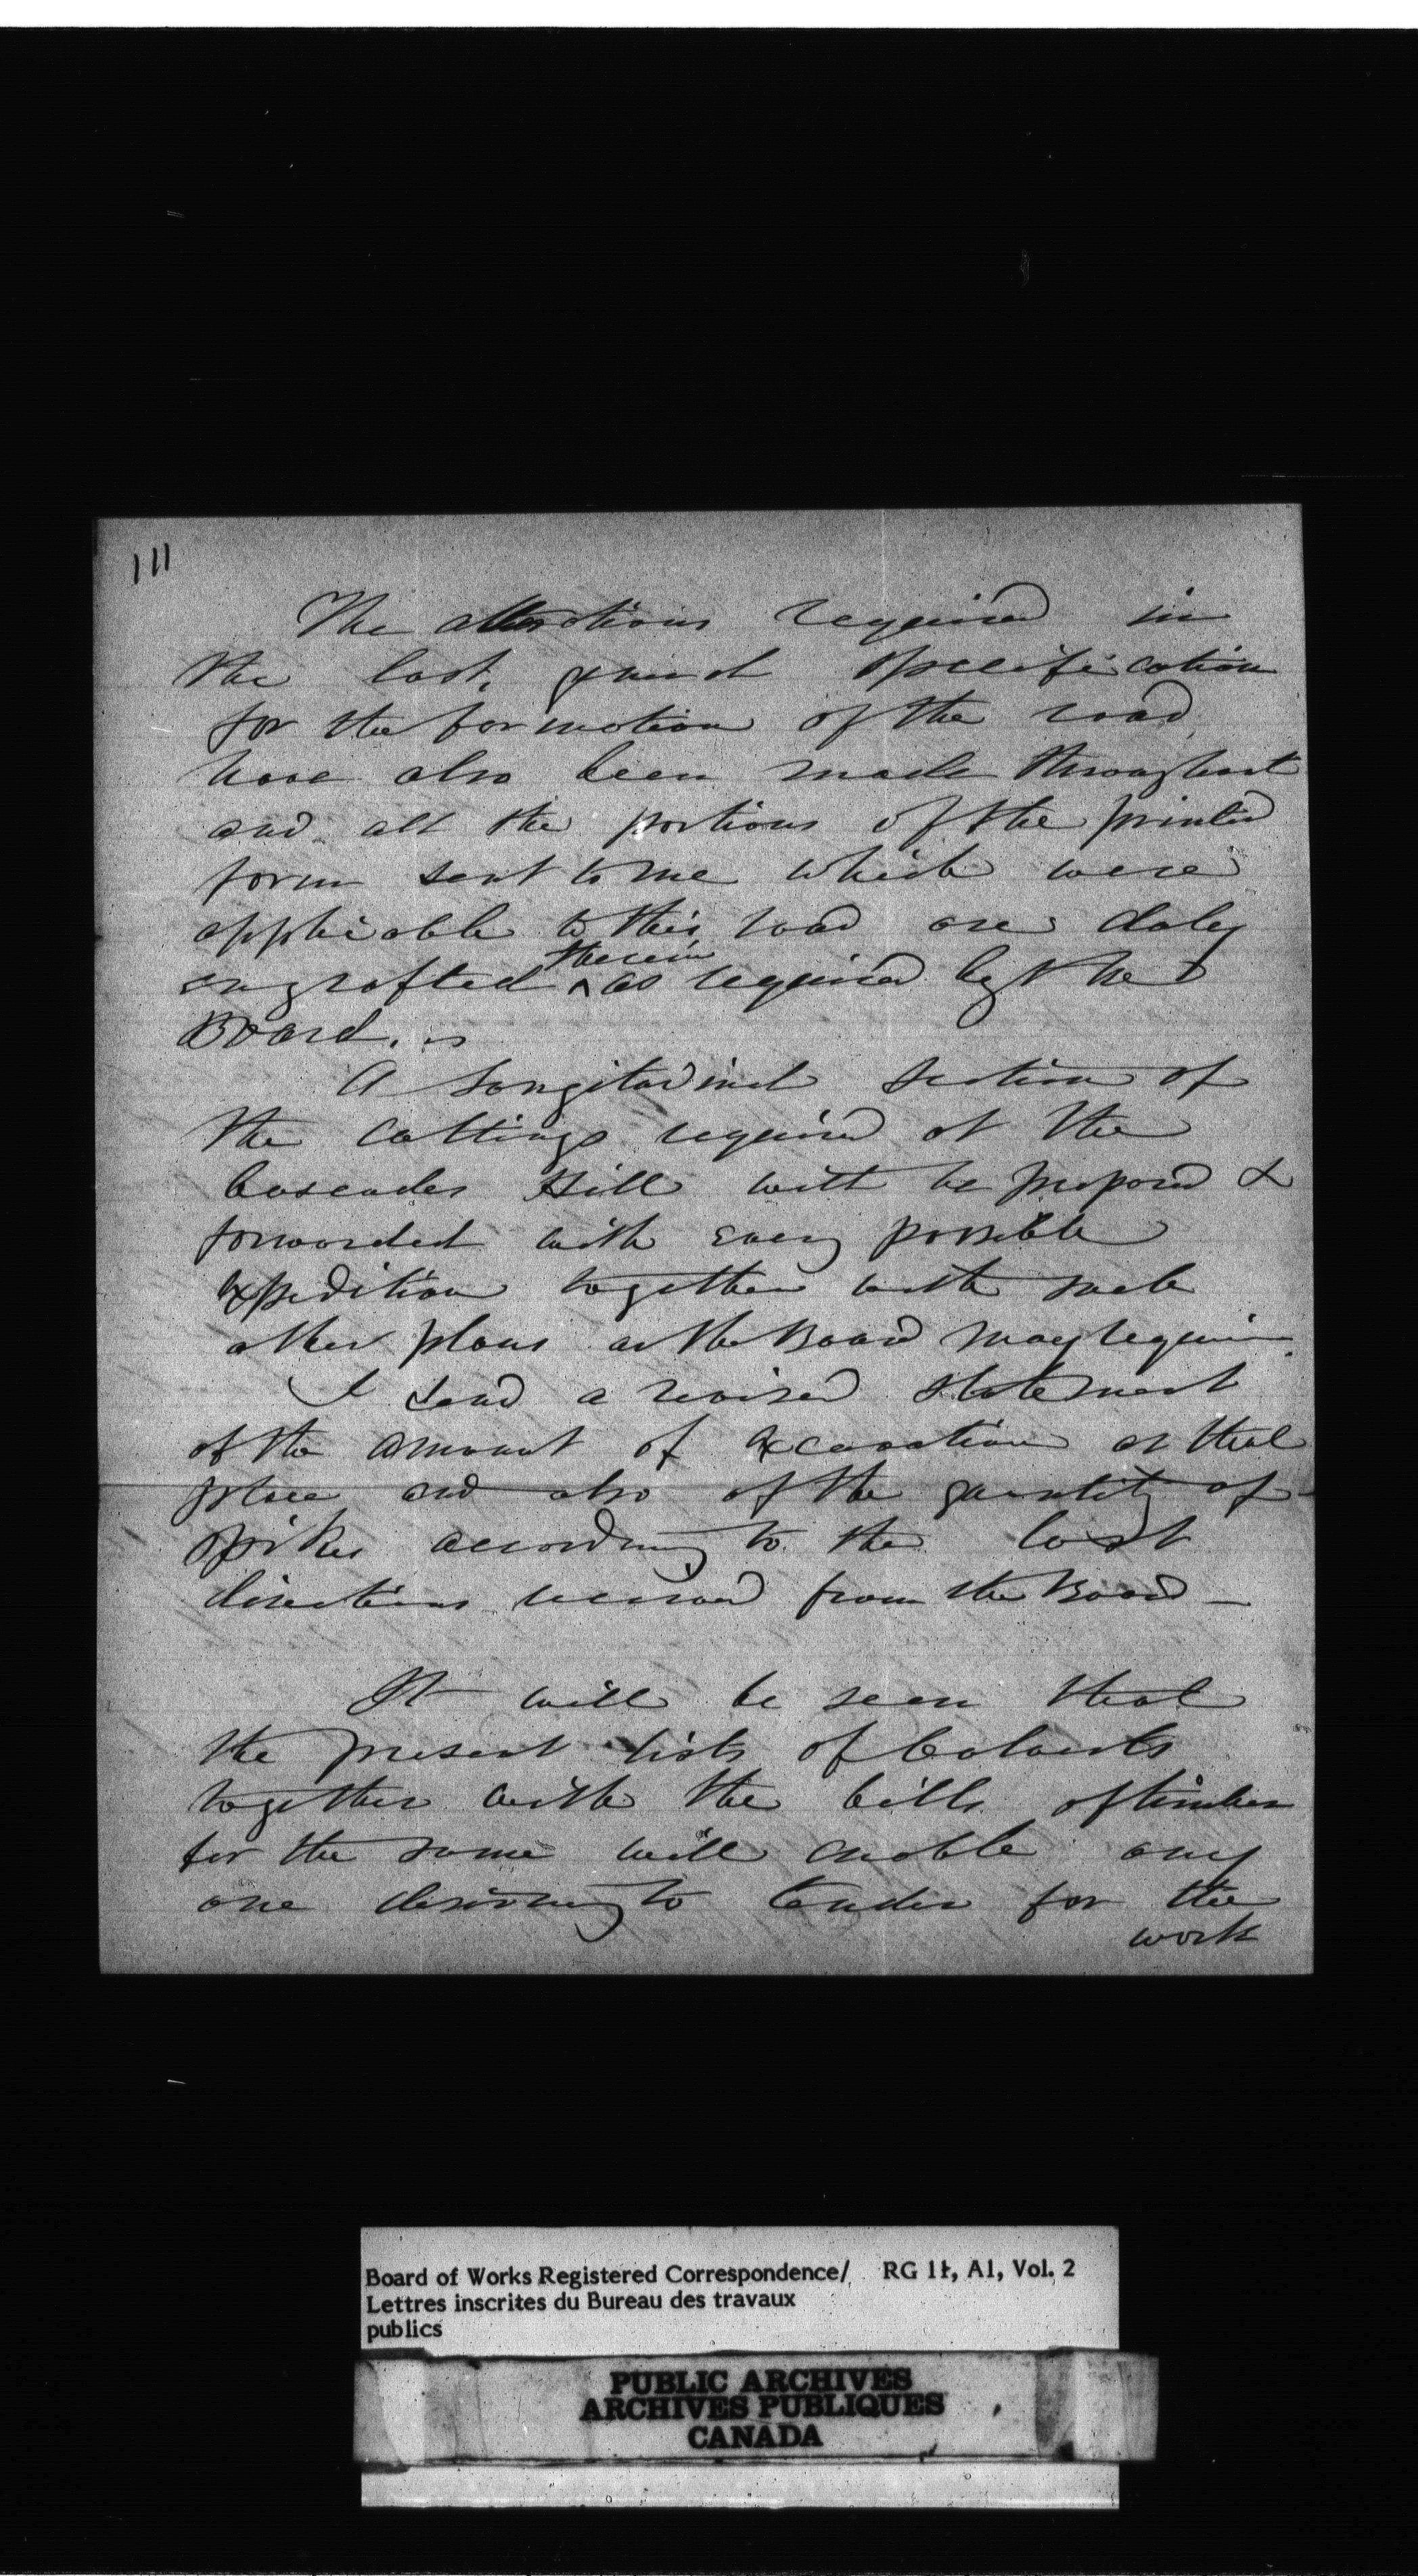 111
The alterations required in
the last general specification
for the formation of the road
have also been made throughout
and all the portions of the printed
form sent to me which were
applicable to this road are duly
engrafted therein as required by the
Board.
A Longitudinal Section of
the Cuttings required at the
Cascades Hill will be prepared &
forwarded with every possible
expedition together with such
other plans as the Board may require.
I send a revised statement
of the amount of excavation at that
place and also of the quantity of
spikes according to the last
directions received from the Board —
It will be seen that
the present lists of Culverts
together with the bills of timber
for the same will enable any
one desiring to tender for the
work
Board of Works Registered Correspondence/ RG 11, A1, Vol. 2
Lettres inscrites du Bureau des travaux
publics
PUBLIC ARCHIVES
ARCHIVES PUBLIQUES
CANADA